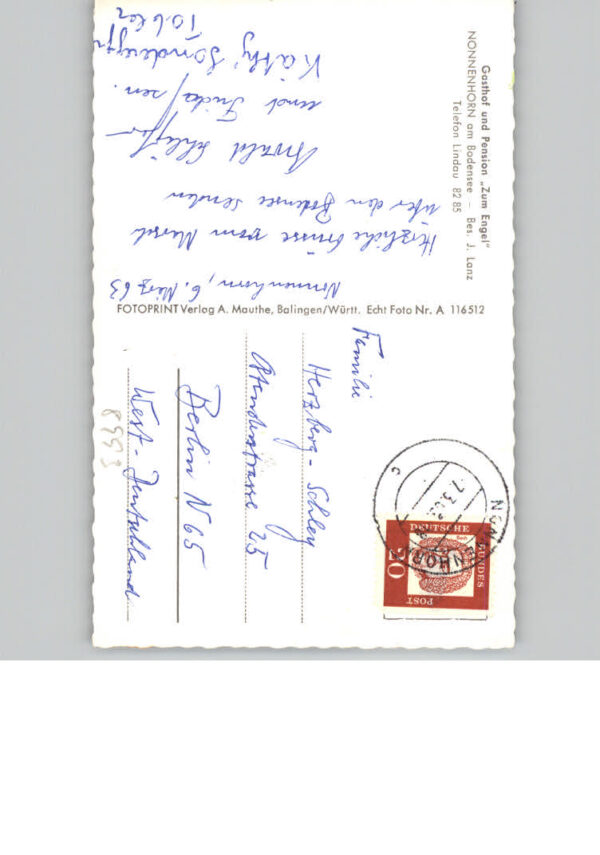 Gasthof und Pension „Zum Engel"
NONNENHORN am Bodensee – Bes. J. Lanz
Telefon Lindau 82 85
Nonnenhorn, 6. März 63
Herzliche Grüsse vom
über den Bodensee senden
und
Käthy
Tobler
FOTOPRINT Verlag A. Mauthe, Balingen/Württ. Echt Foto Nr. A 116512
Familie
Herzberg-Schley
25
Berlin N 65
West-Deutschland
NONNENHORN
7.3.63
c
DEUTSCHE
BUNDES
POST
20